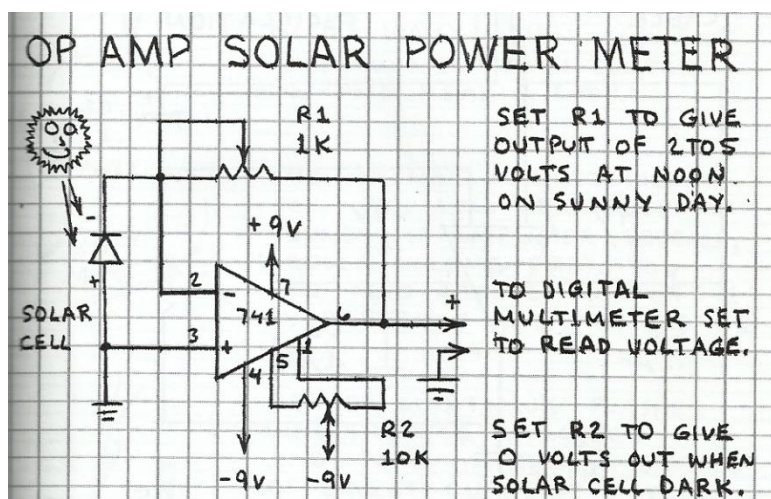 OP AMP SOLAR POWER METER
R1
1K
SET R1 TO GIVE
OUTPUT OF 2 TO 5
VOLTS AT NOON
ON SUNNY DAY.
-
+
SOLAR
CELL
+9V
2
7
-
741
6
3
+
5
1
4
+
TO DIGITAL
MULTIMETER SET
TO READ VOLTAGE.
R2
10K
-9V
-9V
SET R2 TO GIVE
0 VOLTS OUT WHEN
SOLAR CELL DARK.